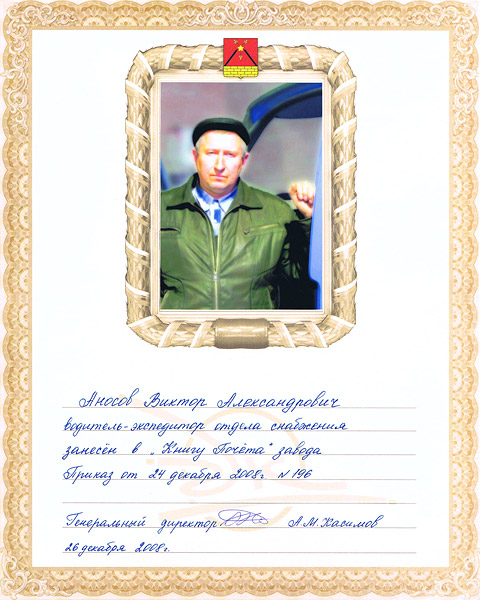 Аносов Виктор Александрович
водитель-экспедитор отдела снабжения
занесён в „Книгу Почёта" завода
Приказ от 24 декабря 2008г. N 196
Генеральный директор А.М.Касимов
26 декабря 2008г.